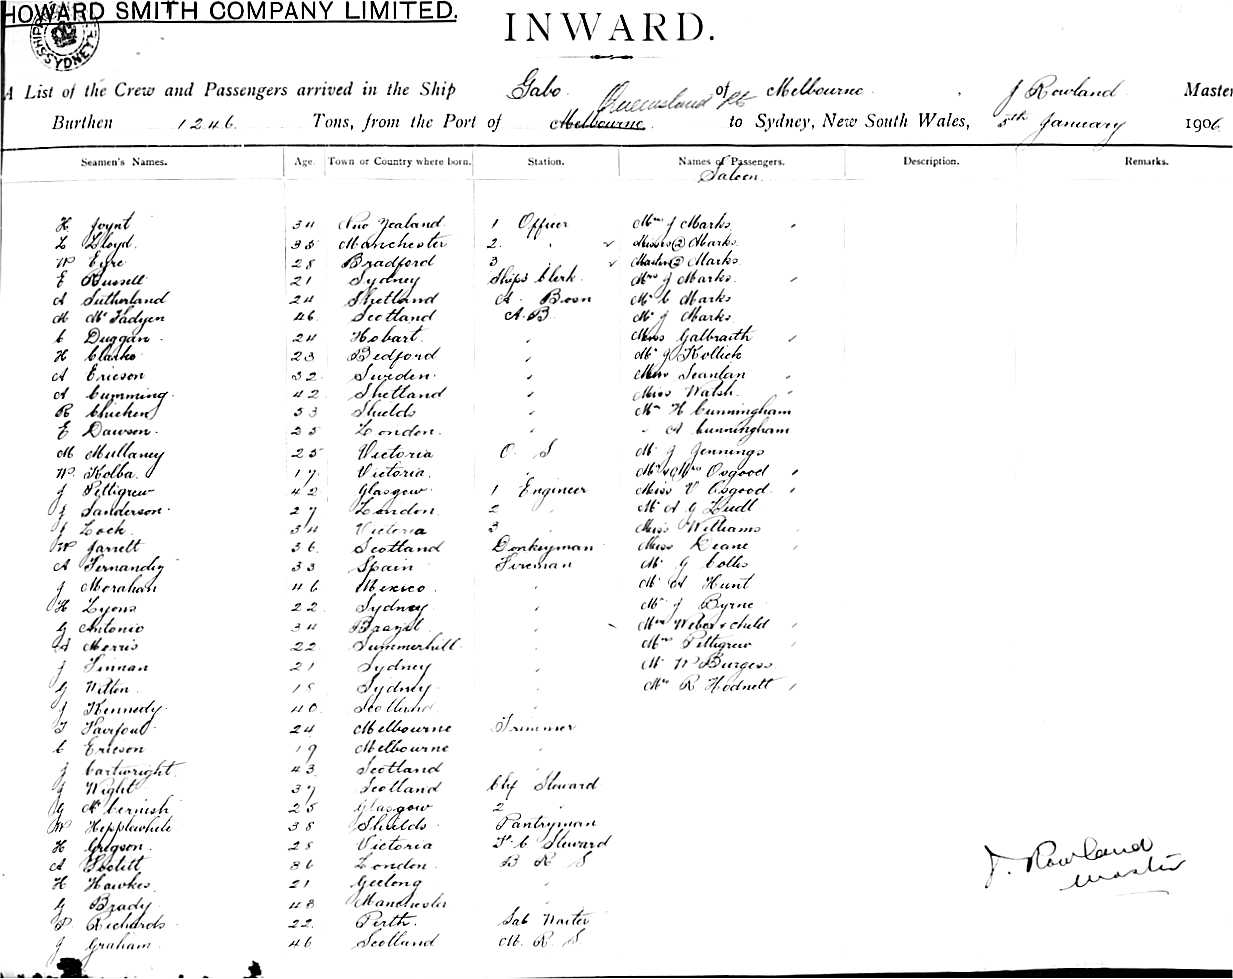 HOWARD SMITH COMPANY LIMITED.
SYDNEY
INWARD.
A List of the Crew and Passengers arrived in the Ship Gabo of Melbourne J Rowland Master
Queensland Pts
Burthen 1246 Tons, from the Port of Melbourne to Sydney, New South Wales, 5th January 1906
Seamen's Names. Age. Town or Country where born. Station. Names of Passengers. Description. Remarks.
Saloon
H Joynt 34 New Zealand 1 Officer Mrs J Marks
L Lloyd 35 Manchester 2 " Misses (2) Marks
W Eyre 28 Bradford 3 " Masters (2) Marks
E Russell 21 Sydney Ships Clerk Mrs J Marks
A Sutherland 24 Shetland A. Bosn Mr C Marks
M McFadyen 46 Scotland A.B. Mr J Marks
C Duggan 24 Hobart " Miss Galbraith
H Clarke 23 Bedford " Mr J Kollick
A Ericson 32 Sweden " Miss Scanlan
A Cumming 42 Shetland " Miss Walsh
R Chicken 53 Shields " Mrs H Cunningham
E Dawson 25 London " " A Cunningham
M Mullaney 25 Victoria O S Mr J Jennings
W Kolba 17 Victoria " Mr & Mrs Osgood
J Pettigrew 42 Glasgow 1 Engineer Miss V Osgood
J Sanderson 27 London 2 " Mr A G Ludt
J Lock 34 Victoria 3 " Miss Williams
W Jarrett 36 Scotland Donkeyman Miss Deane
A Fernandez 33 Spain Fireman Mr G Collis
J Morahan 46 Mexico " Mr A Hunt
H Lyons 22 Sydney " Mr J Byrne
G Antonio 34 Brazil " Mrs Weber & child
A Morris 22 Summerhill " Mrs Pettigrew
J Finnan 21 Sydney " Mr W Burgess
G Wilton 18 Sydney " Mrs R Hodnett
J Kennedy 40 Scotland "
T Fairfoul 24 Melbourne Trimmer
C Ericson 19 Melbourne "
J Cartwright 43 Scotland "
J Wight 37 Scotland Chf Steward
G McCernish 25 Glasgow 2 "
W Hepplewhite 38 Shields Pantryman
H Gregson 28 Victoria F. C Steward
A 36 London B R S
H Hawkes 21 Geelong "
G Brady 43 Manchester "
P Richards 22 Perth Sal Waiter
J Graham 46 Scotland M. R. S
J. Rowland
Master